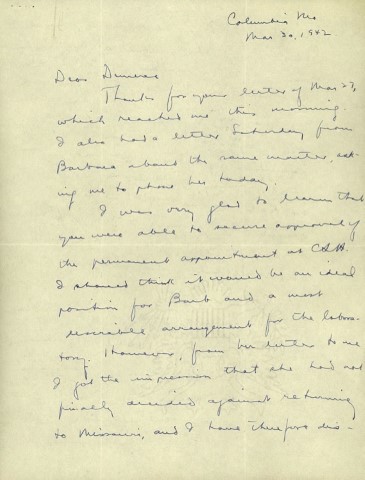 Columbia Mo
Mar 30, 1942
Dear Demerec
Thanks for your letter of Mar 27,
which reached me this morning.
I also had a letter Saturday from
Barbara about the same matter, ask-
ing me to phone her today.
I was very glad to learn that
you were able to secure approval of
the permanent appointment at CSH.
I should think it would be an ideal
position for Barb and a most
desirable arrangement for the labora-
tory. However, from her letter to me
I got the impression that she had not
finally decided against returning
to Missouri, and I have therefore dis-